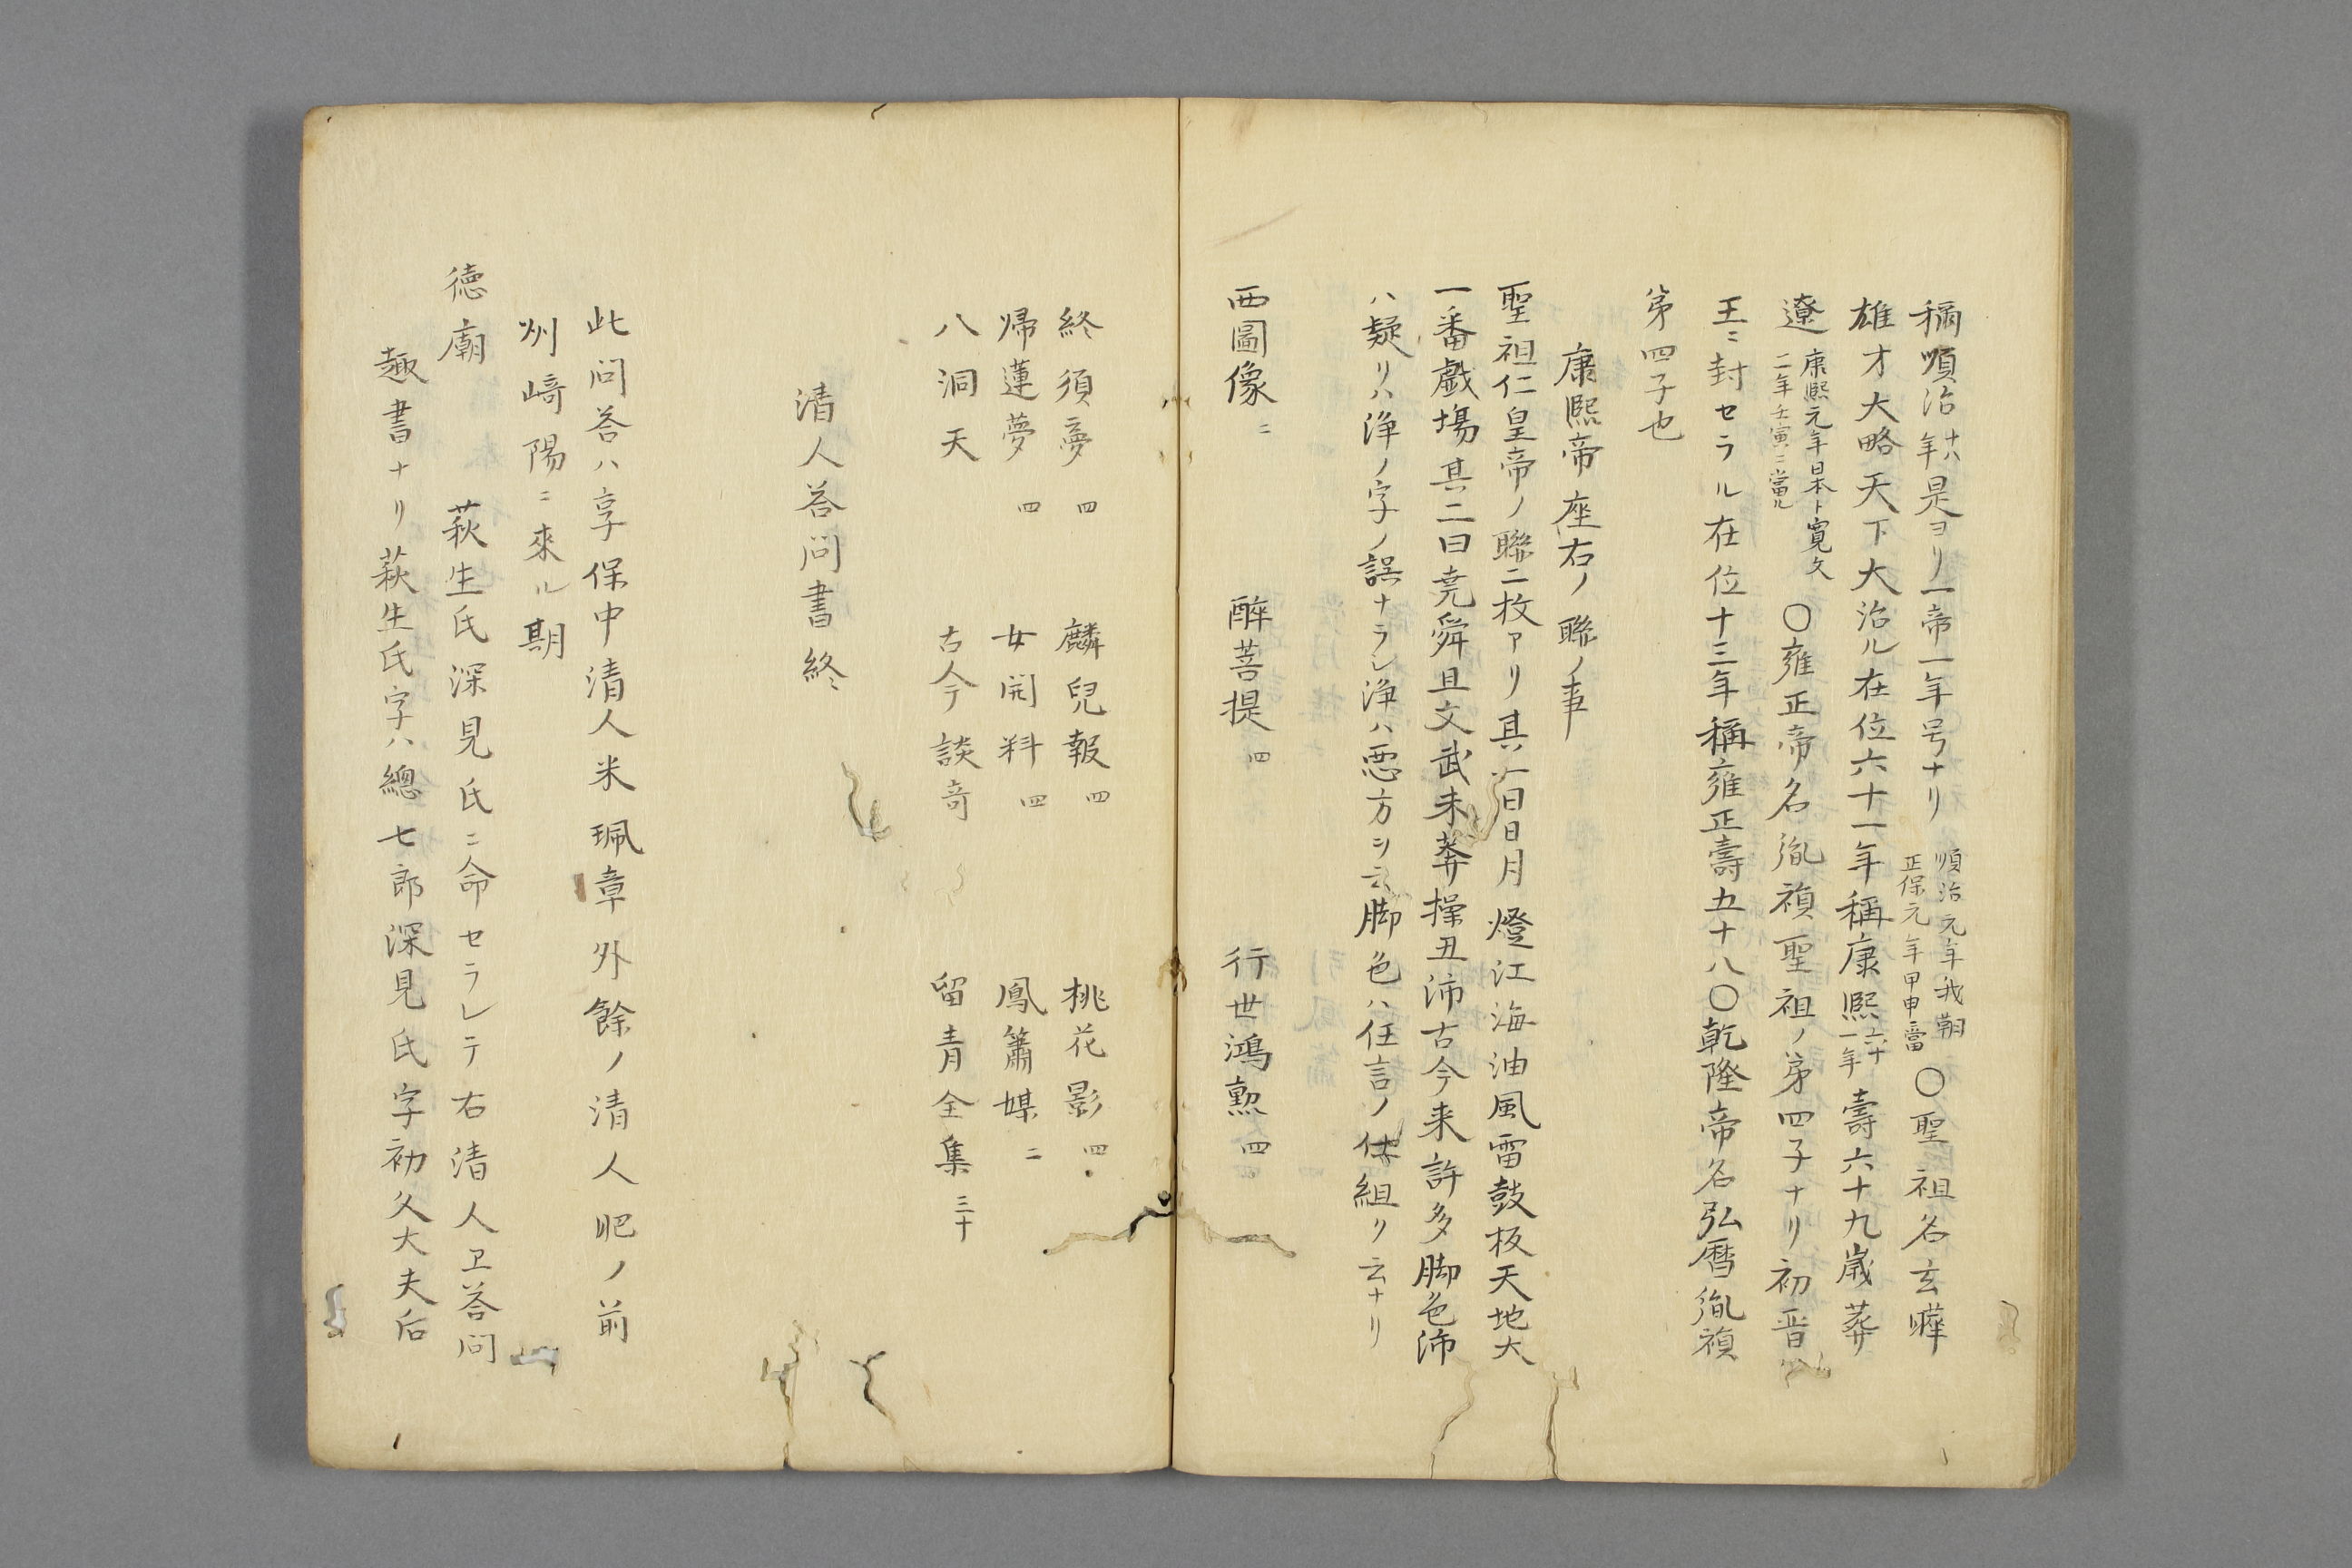 稱順治十八年是ヨリ一帝一年号ナリ 順治元年我朝正保元年甲申當 〇聖祖名玄曄
雄才大略天下大治ル在位六十一年稱康熙六十一年壽六十九歳葬
遼 康熙元年日本ト寛文二年壬寅ニ當ル 〇雍正帝名胤禎聖祖ノ第四子ナリ初晋
王ニ封セラル在位十三年稱雍正壽五十八〇乾隆帝名弘暦胤禎
第四子也
康熙帝座右ノ聯ノ事
聖祖仁皇帝ノ聯二枚アリ其一曰日月燈江海油風雷鼓板天地大
一番戯塲其二曰尭舜旦文武末莽操丑沛古今来許多脚色沛
ハ疑リハ浄ノ字ノ誤ナラン浄ハ悪方ヲ云脚色ハ任言ノ仕組ヲ云ナリ
西圖像ニ 醉菩提四 行世鴻勲四
終須夢四 麟兒報四 桃花影四
帰蓮夢四 女開科四 鳳簫媒二
八洞天 古今談奇 留青全集三十
清人荅問書終
此問荅ハ享保中清人米珮章外餘ノ清人肥ノ前
州﨑陽ニ來ル期
徳廟 萩生氏深見氏ニ命セラレテ右清人ヱ荅問
趣書ナリ萩生氏字ハ總七郎深見氏字初久大夫后